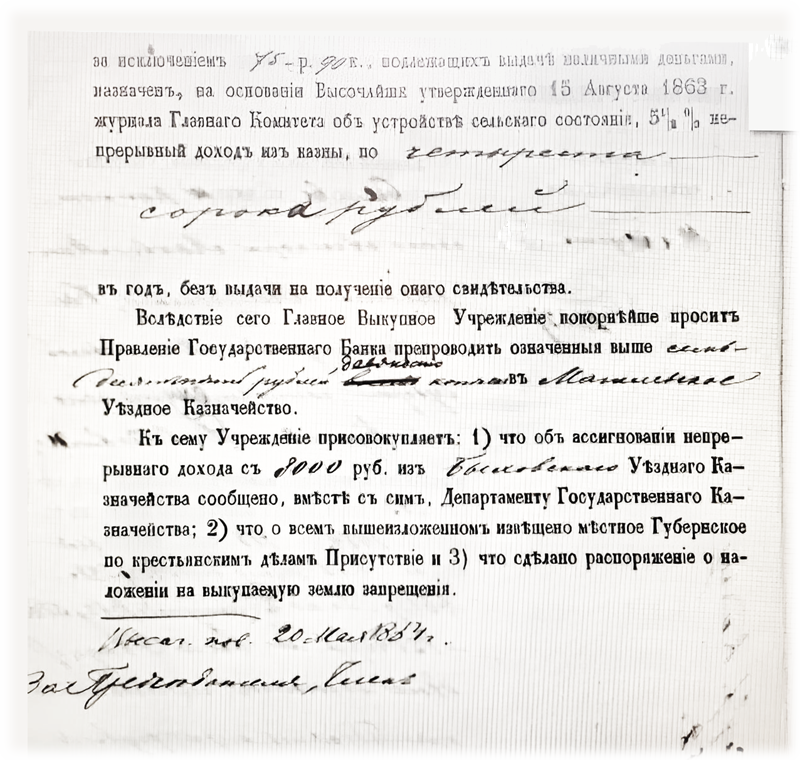 за исключенiемъ 75 р. 90 к., подлежащихъ выдачѣ наличными деньгами,
назначенъ, на основанiи Высочайше утвержденнаго 15 Августа 1863 г.
журнала Главнаго Комитета объ устройствѣ сельскаго состоянiя, 5½ % не-
прерывный доходъ изъ казны, по четыреста
сорока рублей
въ годъ, безъ выдачи на полученiе онаго свидѣтельства.
Вслѣдствiе сего Главное Выкупное Учрежденiе покорнѣйше проситъ
Правленiе Государственнаго Банка препроводить означенныя выше семь-
девяносто
десятъ пять рублей копѣекъ въ
Уѣздное Казначейство.
Къ сему Учрежденiе присовокупляетъ: 1) что объ ассигнованiи непре-
рывнаго дохода съ 8000 руб. изъ Уѣзднаго Ка-
значейства сообщено, вмѣстѣ съ симъ, Департаменту Государственнаго Ка-
значейства; 2) что о всемъ вышеизложенномъ извѣщено мѣстное Губернское
по крестьянскимъ дѣламъ Присутствiе и 3) что сдѣлано распоряженiе о на-
ложенiи на выкупаемую землю запрещенiя.
Высоч. пов. 20 Мая г.
За Предсѣдателя, Членъ